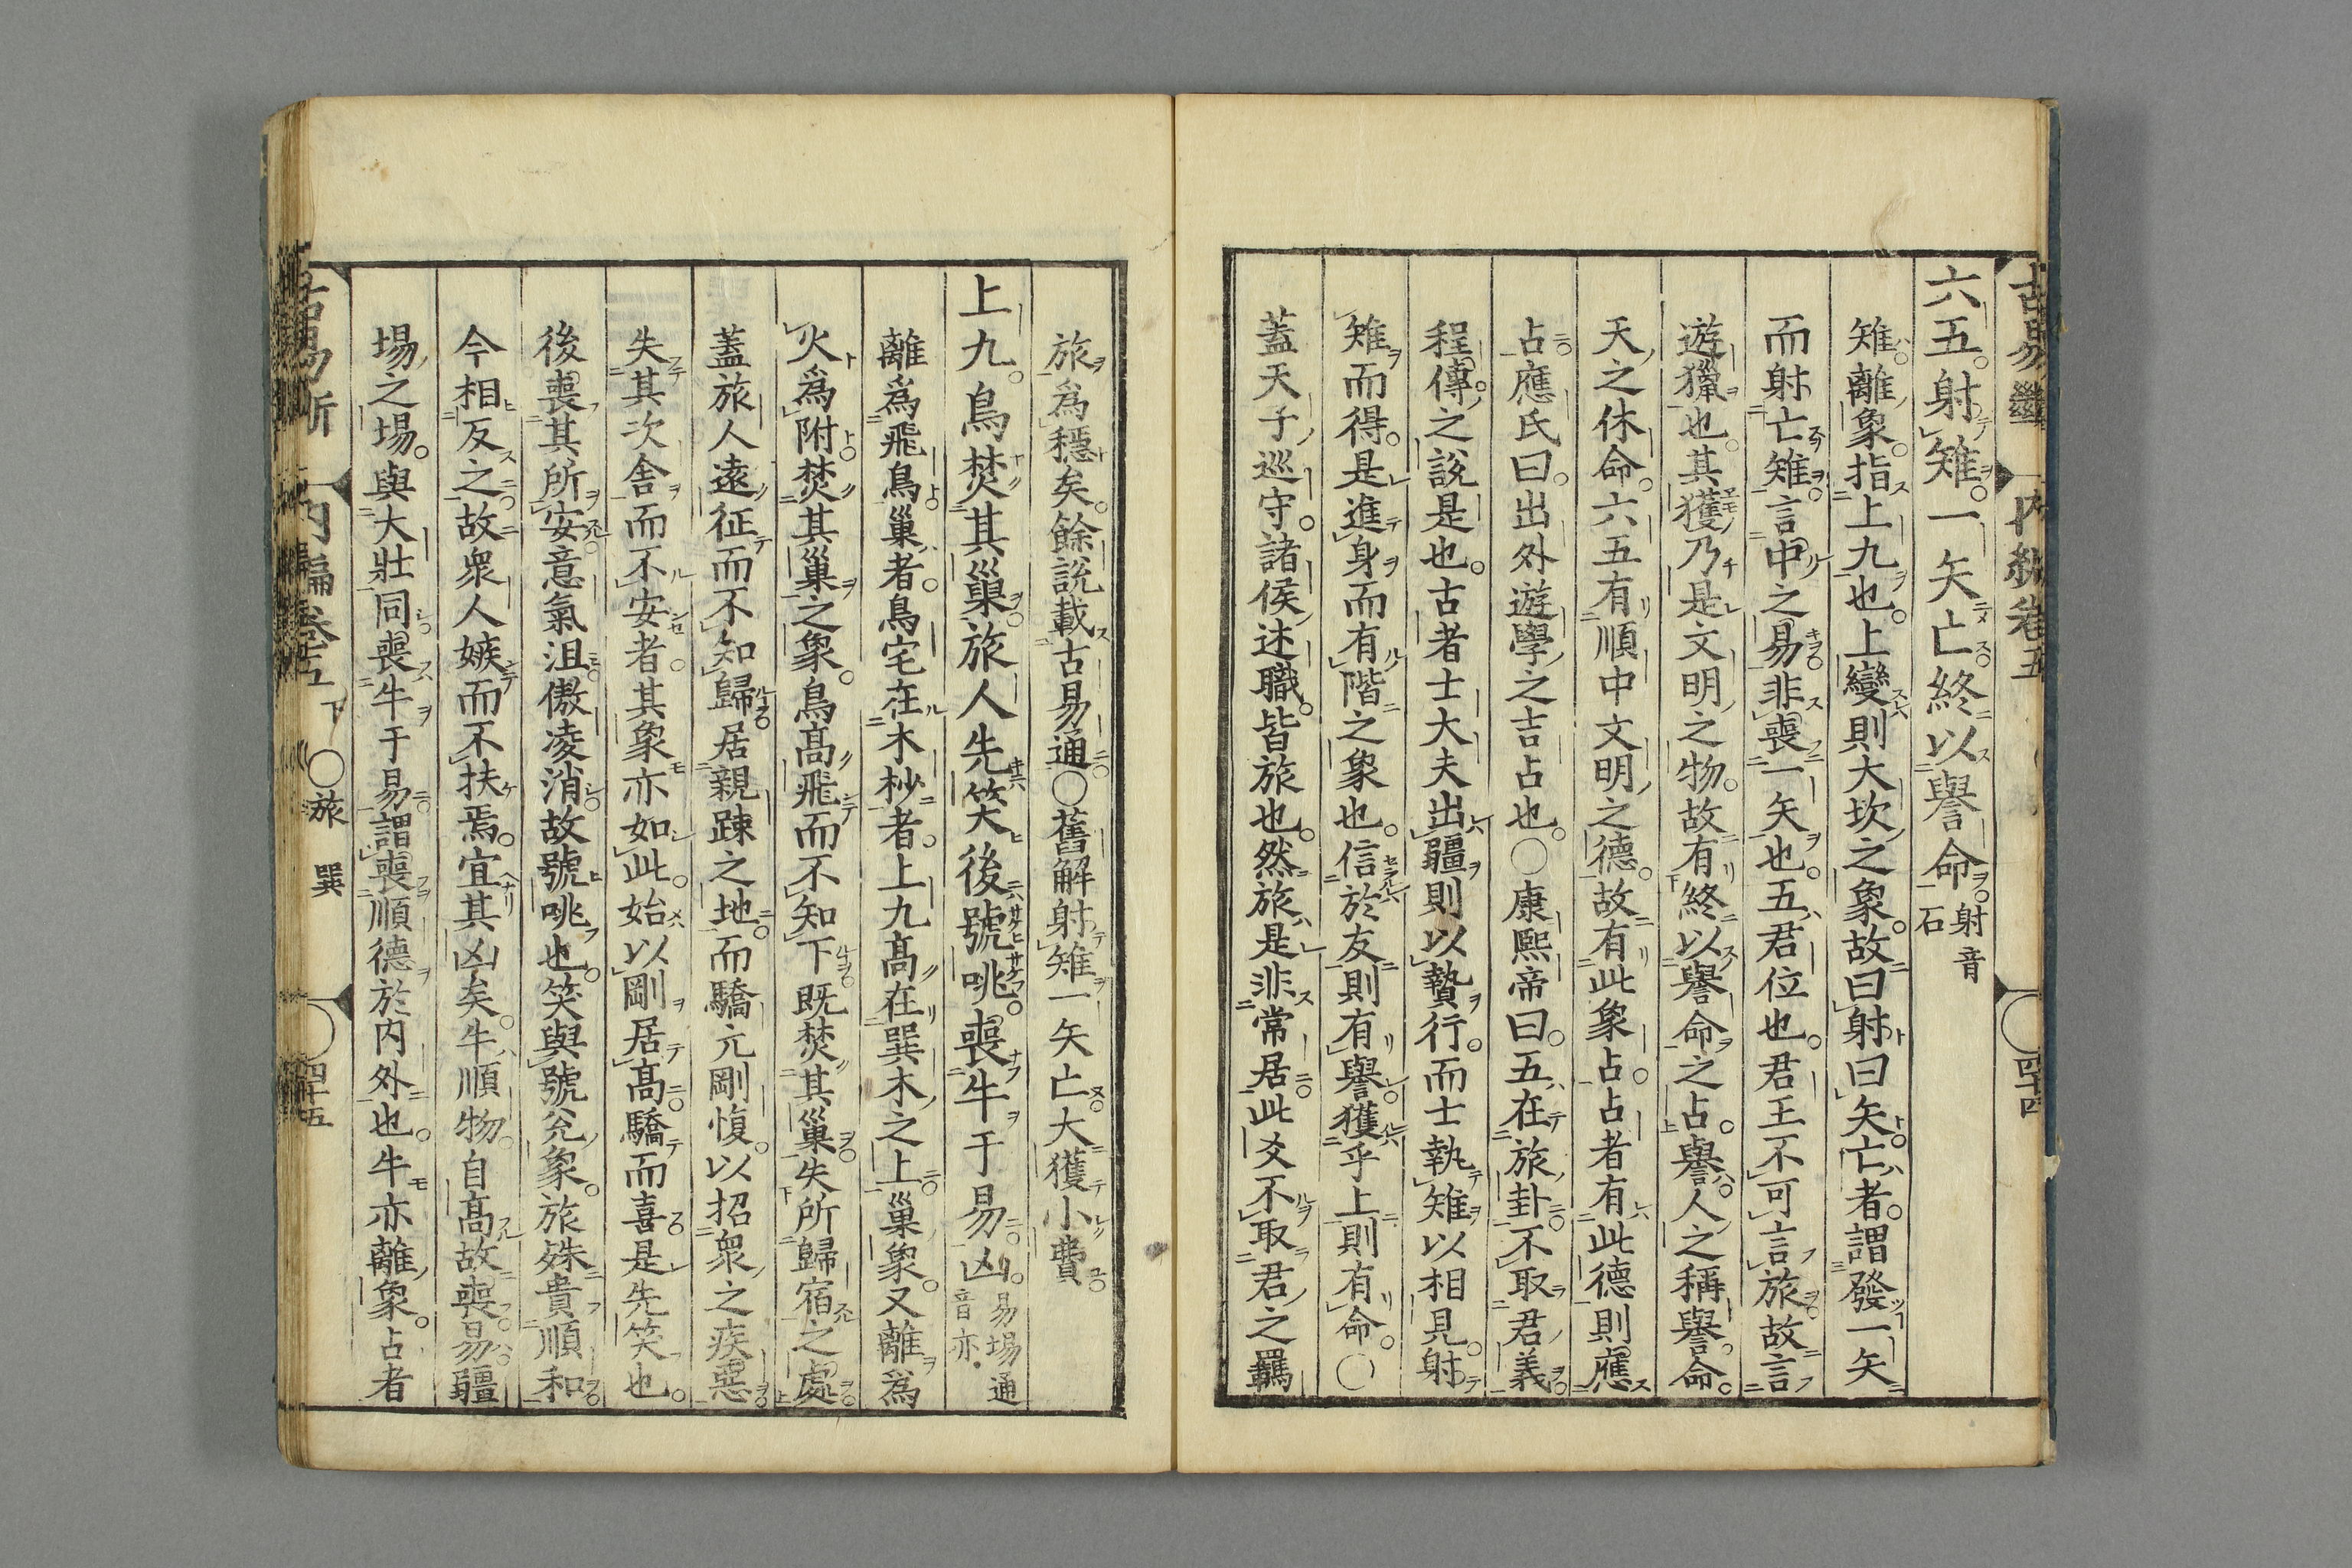 六五。射雉。一矢亡。終以譽命。射音石
雉離象。指上九也。上變則大坎之象。故曰射曰矢。亡者。謂發一矢
而射亡雉。言中之易。非喪一矢也。五君位也。君王不可言旅。故言
遊獵也。其獲乃是文明之物。故有終以譽命之占。譽人之稱譽。命。
天之休命。六五有順中文明之德。故有此象占。占者有此德則應
占。應氏曰。出外遊學之吉占也。○康熙帝曰。五在旅卦。不取君義。
程傳之說是也。古者士大夫出疆則以贄行。而士執雉以相見。射
雉而得。是進身而有階之象也。信於友則有譽。獲乎上則有命。○
蓋天子巡守。諸侯述職。皆旅也。然旅是非常居。此爻不取君之羈
旅爲穩矣。餘說載古易通。○舊解射雉一矢亡。大獲小費。
上九。鳥焚其巢。旅人先笑後號咷。喪牛于易。凶。易場通音亦
離爲飛鳥。巢者。鳥宅在木杪者。上九高在巽木之上。巢象。又離爲
火爲附。焚其巢之象。鳥高飛而不知下既焚其巢。失所歸宿之處。
蓋旅人遠征而不知歸。居親踈之地。而驕亢剛愎。以招衆之疾惡。
失其次舍而不安者。其象亦如此。始以剛居高。驕而喜。是先笑也。
後喪其所安。意氣沮。傲凌消。故號咷也。笑與號。兌象。旅殊貴順和。
今相反之。故衆人嫉而不扶焉。宜其凶矣。牛順物。自高故喪。易疆
場之場。與大壯同。喪牛于易。謂喪順德於内外也。牛亦離象。占者
内編卷五下 ○旅 巽 四十五